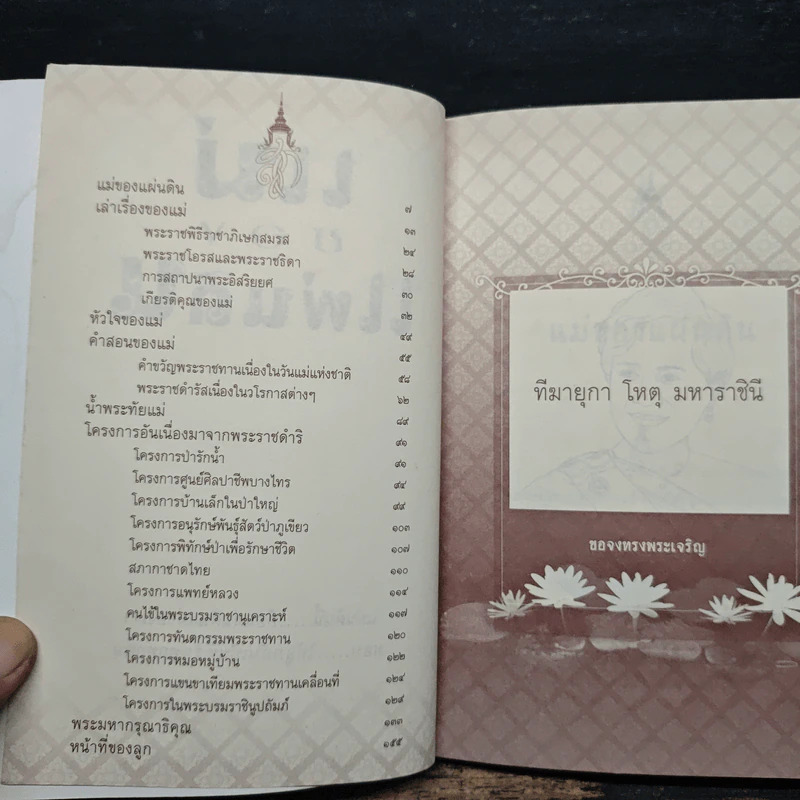 แม่ของแผ่นดิน ๗
เล่าเรื่องของแม่ ๑๓
พระราชพิธีราชาภิเษกสมรส ๒๔
พระราชโอรสและพระราชธิดา ๒๘
การสถาปนาพระอิสริยยศ ๓๐
เกียรติคุณของแม่ ๓๒
หัวใจของแม่ ๔๙
คำสอนของแม่ ๕๕
คำขวัญพระราชทานเนื่องในวันแม่แห่งชาติ ๕๘
พระราชดำรัสเนื่องในวโรกาสต่างๆ ๖๒
น้ำพระทัยแม่ ๘๙
โครงการอันเนื่องมาจากพระราชดำริ ๙๑
โครงการป่ารักน้ำ ๙๑
โครงการศูนย์ศิลปาชีพบางไทร ๙๔
โครงการบ้านเล็กในป่าใหญ่ ๙๙
โครงการอนุรักษ์พันธุ์สัตว์ป่าภูเขียว ๑๐๓
โครงการพิทักษ์ป่าเพื่อรักษาชีวิต ๑๐๗
สภากาชาดไทย ๑๑๐
โครงการแพทย์หลวง ๑๑๔
คนไข้ในพระบรมราชานุเคราะห์ ๑๑๗
โครงการทันตกรรมพระราชทาน ๑๒๐
โครงการหมอหมู่บ้าน ๑๒๒
โครงการแขนขาเทียมพระราชทานเคลื่อนที่ ๑๒๔
โครงการในพระบรมราชินูปถัมภ์ ๑๒๙
พระมหากรุณาธิคุณ ๑๓๓
หน้าที่ของลูก ๑๕๕
ทีฆายุกา โหตุ มหาราชินี
ขอจงทรงพระเจริญ